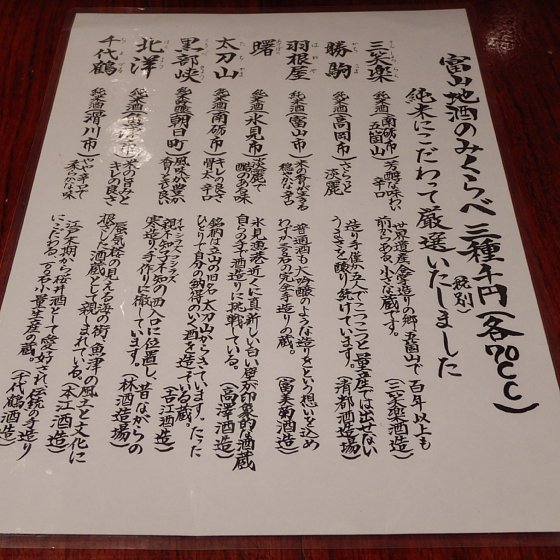 富山地酒のみくらべ 三種千円(各70cc)
(税別)
純米にこだわって厳選いたしました
三笑楽 純米酒(南砺市 五箇山) 芳醇な味わい 辛口
世界遺産合掌造りの郷、五箇山で百年以上も
前からある、小さな蔵です。(三笑楽酒造)
勝駒 純米酒(高岡市) さらっと 淡麗
造り手僅か五人でこつこつと量産では出せない
うまさを醸り続けています。(清都酒造場)
羽根屋 純米酒(富山市) 米の香り生きる 穏やかな辛口
普通酒も大吟醸のような造りをという想いを込め
わずか三名の完全手造りの蔵。(富美菊酒造)
曙 純米酒(氷見市) 淡麗で 酸のある味
氷見漁港近くに真新しい白い壁が印象的な酒蔵
自らの手で酒造りに挑戦している。(髙澤酒造)
太刀山 純米酒(南砺市) キレの良さ 骨太辛口
銘柄は立山の別名、太刀山からきています。たった
ひとりで自分の納得のいく酒を造っている蔵。(吉江酒造)
黒部峡 純米吟醸(朝日町) 風味が豊か 香りも良い
親不知子不知の西入口に位置し、昔ながらの
実造り、手作りに徹しています。(林酒造場)
北洋 純米酒(魚津市) 米の旨みと キレの良さ
蜃気楼の見える海の街、魚津の風土と文化に
根ざした酒蔵として親しまれている。(本江酒造)
千代鶴 純米酒(滑川市) やや辛口で 柔らかな味
江戸末期から極上酒として愛好され、伝統の手造り
にこだわる、百石小量生産の蔵。(千代鶴酒造)